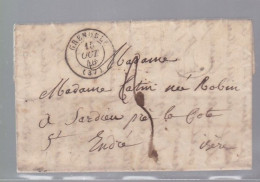 GRENOBLE
15
OCT
(37)
Madame
Madame Catin née Robin
a Sardieu près la Cote
St André
isère